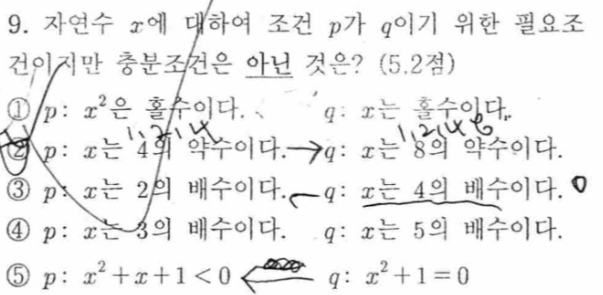 9. 자연수 x에 대하여 조건 p가 q이기 위한 필요조
건이지만 충분조건은 아닌 것은? (5.2점)
① p: x²은 홀수이다. q: x는 홀수이다.
1, 2, 4 1, 2, 4 8
② p: x는 4의 약수이다. → q: x는 8의 약수이다.
③ p: x는 2의 배수이다. ← q: x는 4의 배수이다. O
④ p: x는 3의 배수이다. q: x는 5의 배수이다.
⑤ p: x²+x+1<0 ← q: x²+1=0